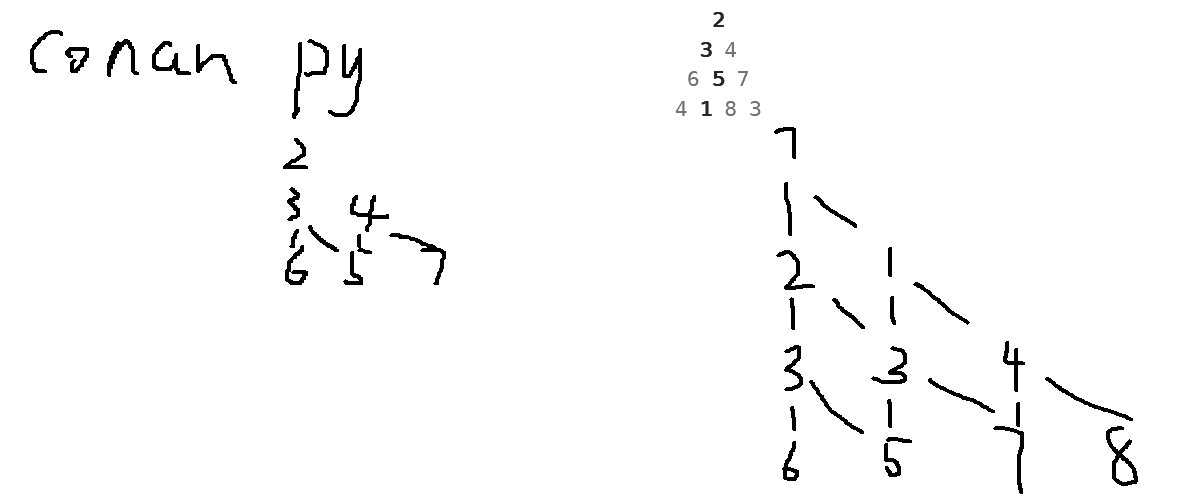 Conan py
2
3 4
6 5 7
2
3 4
6 5 7
4 1 8 3
7
2 1
3 3 4
6 5 7 8